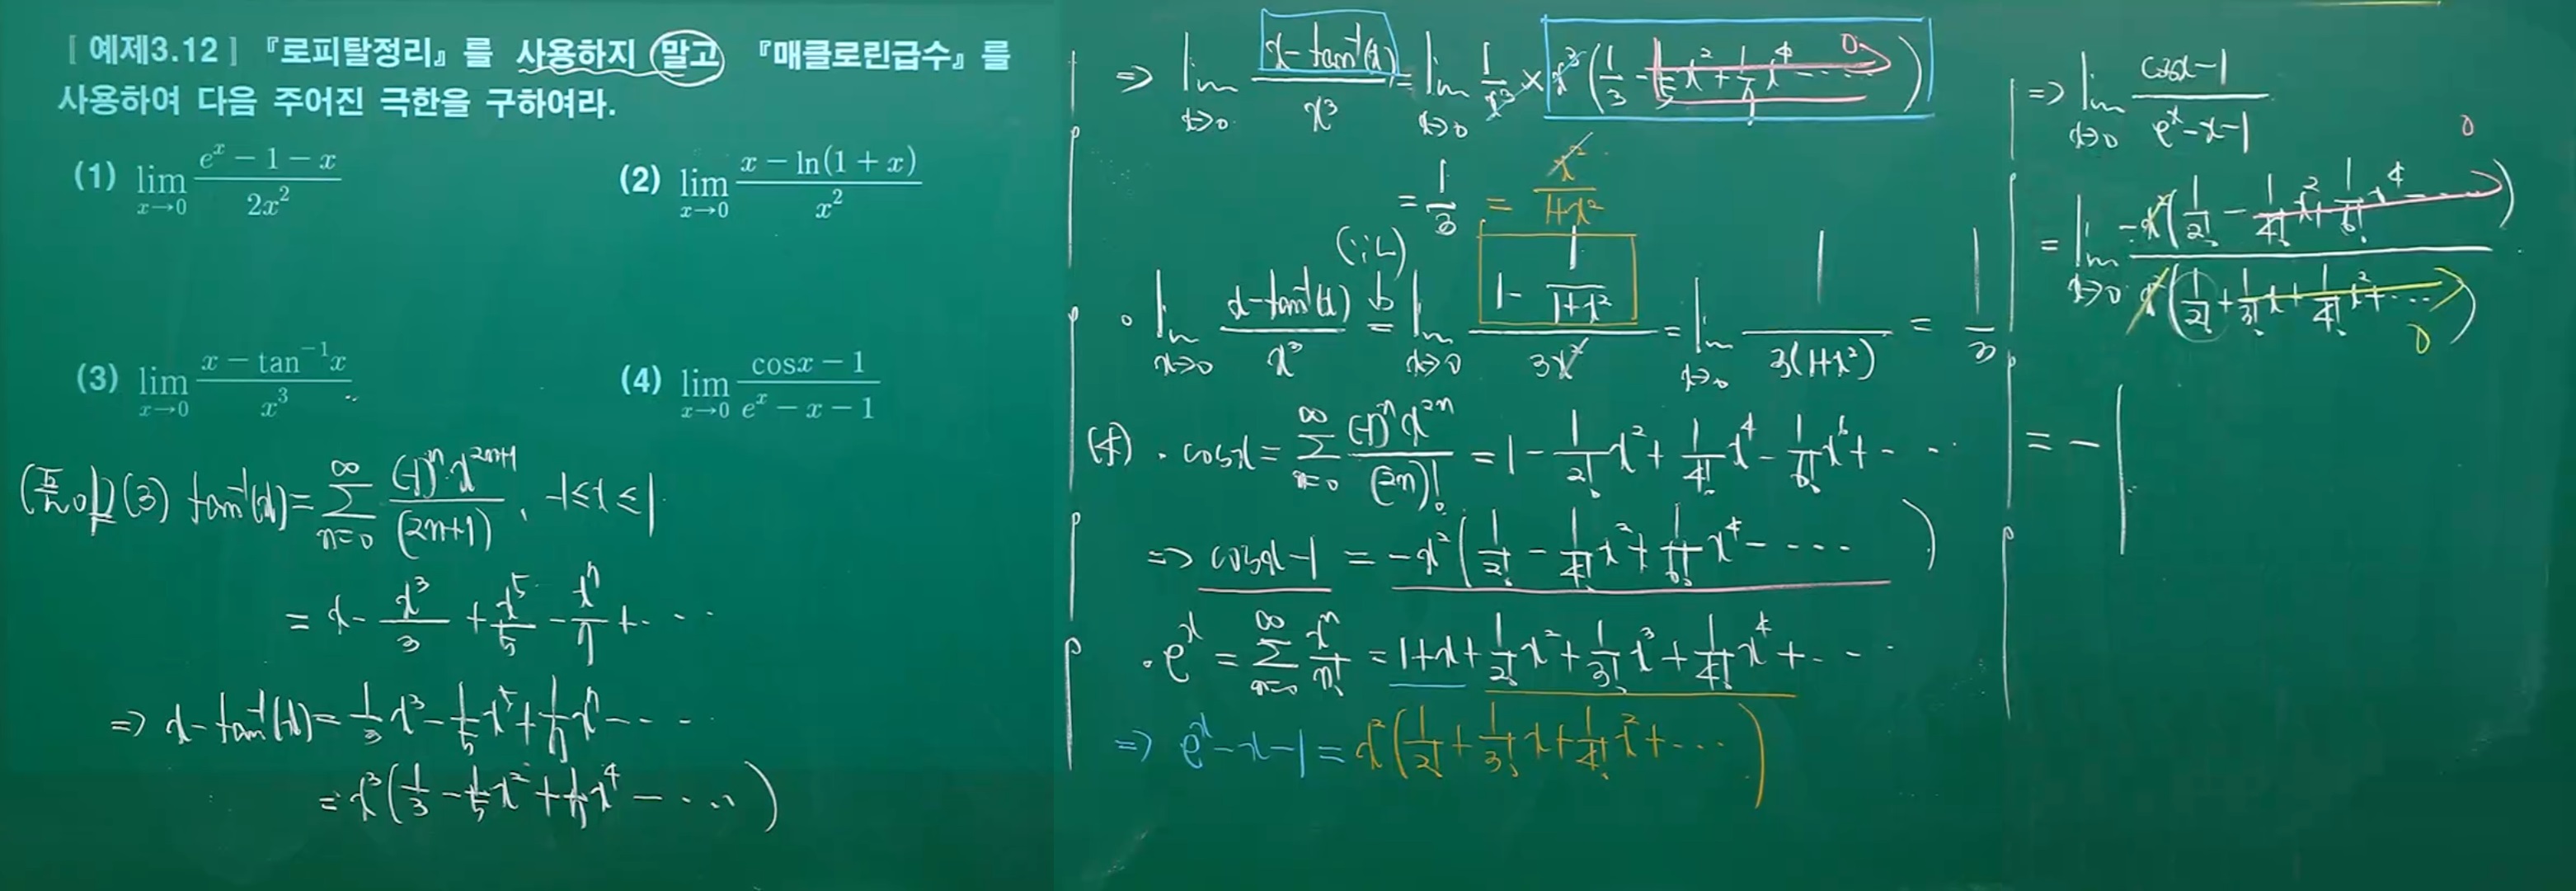 [ 예제3.12 ] 『로피탈정리』를 사용하지 말고 『매클로린급수』를
사용하여 다음 주어진 극한을 구하여라.
(1) lim_{x→0} (e^x − 1 − x)/(2x²)
(2) lim_{x→0} (x − ln(1 + x))/x²
(3) lim_{x→0} (x − tan⁻¹x)/x³
(4) lim_{x→0} (cosx − 1)/(e^x − x − 1)
(풀이) (3) tan⁻¹(x) = Σ_{n=0}^{∞} (-1)ⁿ·x^{2n+1}/(2n+1), -1≤x≤1
= x − x³/3 + x⁵/5 − x⁷/7 + ⋯
⇒ x − tan⁻¹(x) = 1/3 x³ − 1/5 x⁵ + 1/7 x⁷ − ⋯
= x³(1/3 − 1/5 x² + 1/7 x⁴ − ⋯)
⇒ lim_{x→0} (x − tan⁻¹(x))/x³ = lim_{x→0} 1/x³ × x³(1/3 − 1/5 x² + 1/7 x⁴ − ⋯) 0
= 1/3 = x²/(1+x²)
(∵L)
• lim_{x→0} (x − tan⁻¹(x))/x³ = lim_{x→0} (1 − 1/(1+x²))/(3x²) = lim_{x→0} 1/(3(1+x²)) = 1/3
(4) • cosx = Σ_{n=0}^{∞} (-1)ⁿ x^{2n}/(2n)! = 1 − 1/2! x² + 1/4! x⁴ − 1/6! x⁶ + ⋯
⇒ cosx − 1 = −x²(1/2! − 1/4! x² + 1/6! x⁴ − ⋯)
• e^x = Σ_{n=0}^{∞} xⁿ/n! = 1 + x + 1/2! x² + 1/3! x³ + 1/4! x⁴ + ⋯
⇒ e^x − x − 1 = x²(1/2! + 1/3! x + 1/4! x² + ⋯)
⇒ lim_{x→0} (cosx − 1)/(e^x − x − 1)
= lim_{x→0} −x²(1/2! − 1/4! x² + 1/6! x⁴ − ⋯) 0 / x²(1/2! + 1/3! x + 1/4! x² + ⋯) 0
= −1